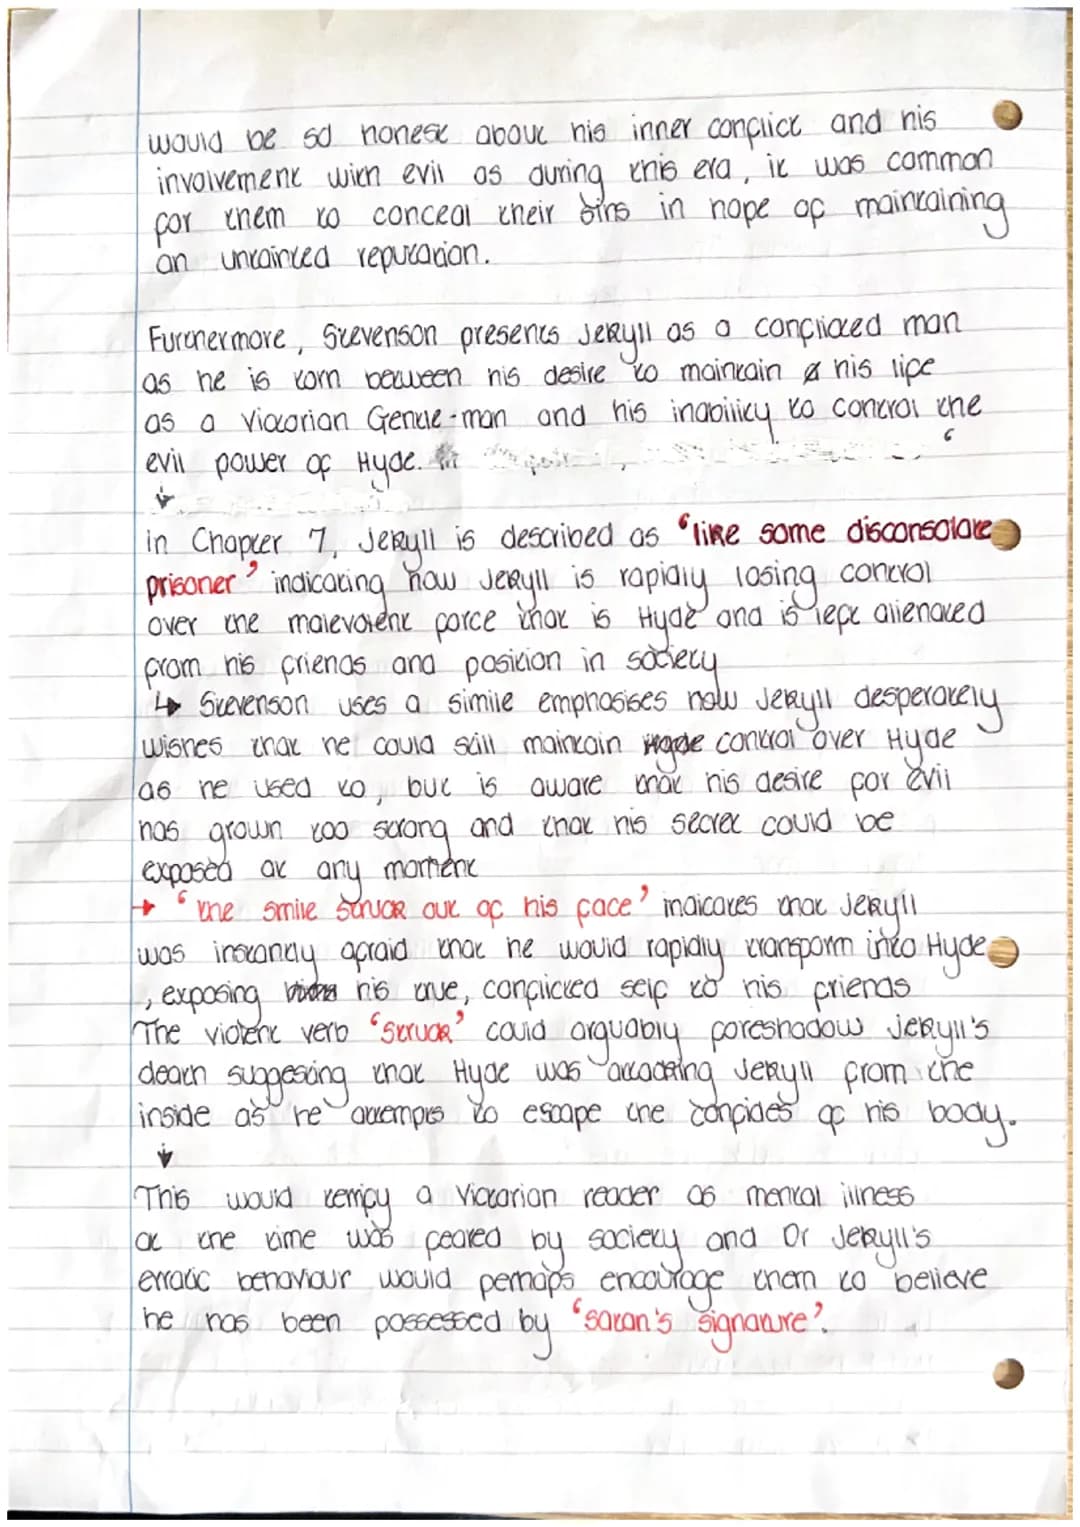 would be so honest about his inner conflict and his
involvement with evil as during this era, it was common
for them to conceal their sins in hope of maintaining
an untainted reputation.
Furthermore, Stevenson presents Jekyll as a conflicted man
as he is torn between his desire to maintain his life
as a Victorian Gentle-man and his inability to control the
evil power of Hyde.
in Chapter 7, Jekyll is described as "like some disconsolate
prisoner' indicating how Jekyll is rapidly losing control
over the malevolent force that is Hyde and is left alienated
from his friends and position in society
↳ Stevenson uses a simile emphasises how Jekyll desperately
wishes that he could still maintain control over Hyde
as he used to, but is aware that his desire for evil
has grown too strong and that his secret could be
exposed at any moment
→ 'the smile struck out of his face' indicates that Jekyll
was instantly afraid that he would rapidly transform into Hyde
, exposing his true, conflicted self to his friends
The violent verb 'struck' could arguably foreshadow Jekyll's
death suggesting that Hyde was attacking Jekyll from the
inside as he attempts to escape the confides of his body.
This would terrify a Victorian reader as mental illness
at the time was feared by society and Dr Jekyll's
erratic behaviour would perhaps encourage them to believe
he has been possessed by 'satan's signature'.